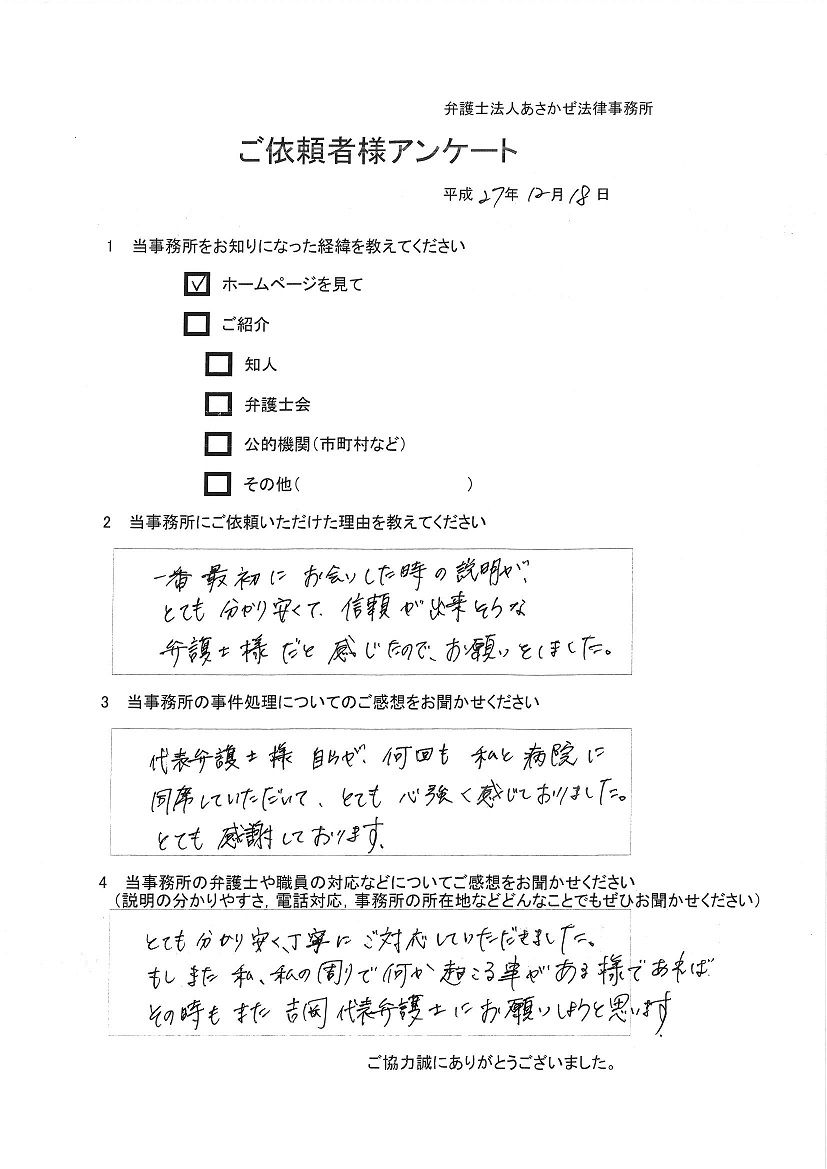 弁護士法人あさかぜ法律事務所
ご依頼者様アンケート
平成27年12月18日
1 当事務所をお知りになった経緯を教えてください
☑ ホームページを見て
□ ご紹介
□ 知人
□ 弁護士会
□ 公的機関(市町村など)
□ その他( )
2 当事務所にご依頼いただけた理由を教えてください
一番最初にお会いした時の説明が、
とても分かり安くて、信頼が出来そうな
弁護士様だと感じたので、お願いをしました。
3 当事務所の事件処理についてのご感想をお聞かせください
代表弁護士様自らが、何回も私と病院に
同席していただいて、とても心強く感じておりました。
とても感謝しております。
4 当事務所の弁護士や職員の対応などについてご感想をお聞かせください
(説明の分かりやすさ,電話対応,事務所の所在地などどんなことでもぜひお聞かせください)
とても分かり安く、丁寧にご対応していただきました。
もしまた私、私の周りで何か起こる事がある様であれば
その時もまた吉岡代表弁護士にお願いしようと思います。
ご協力誠にありがとうございました。